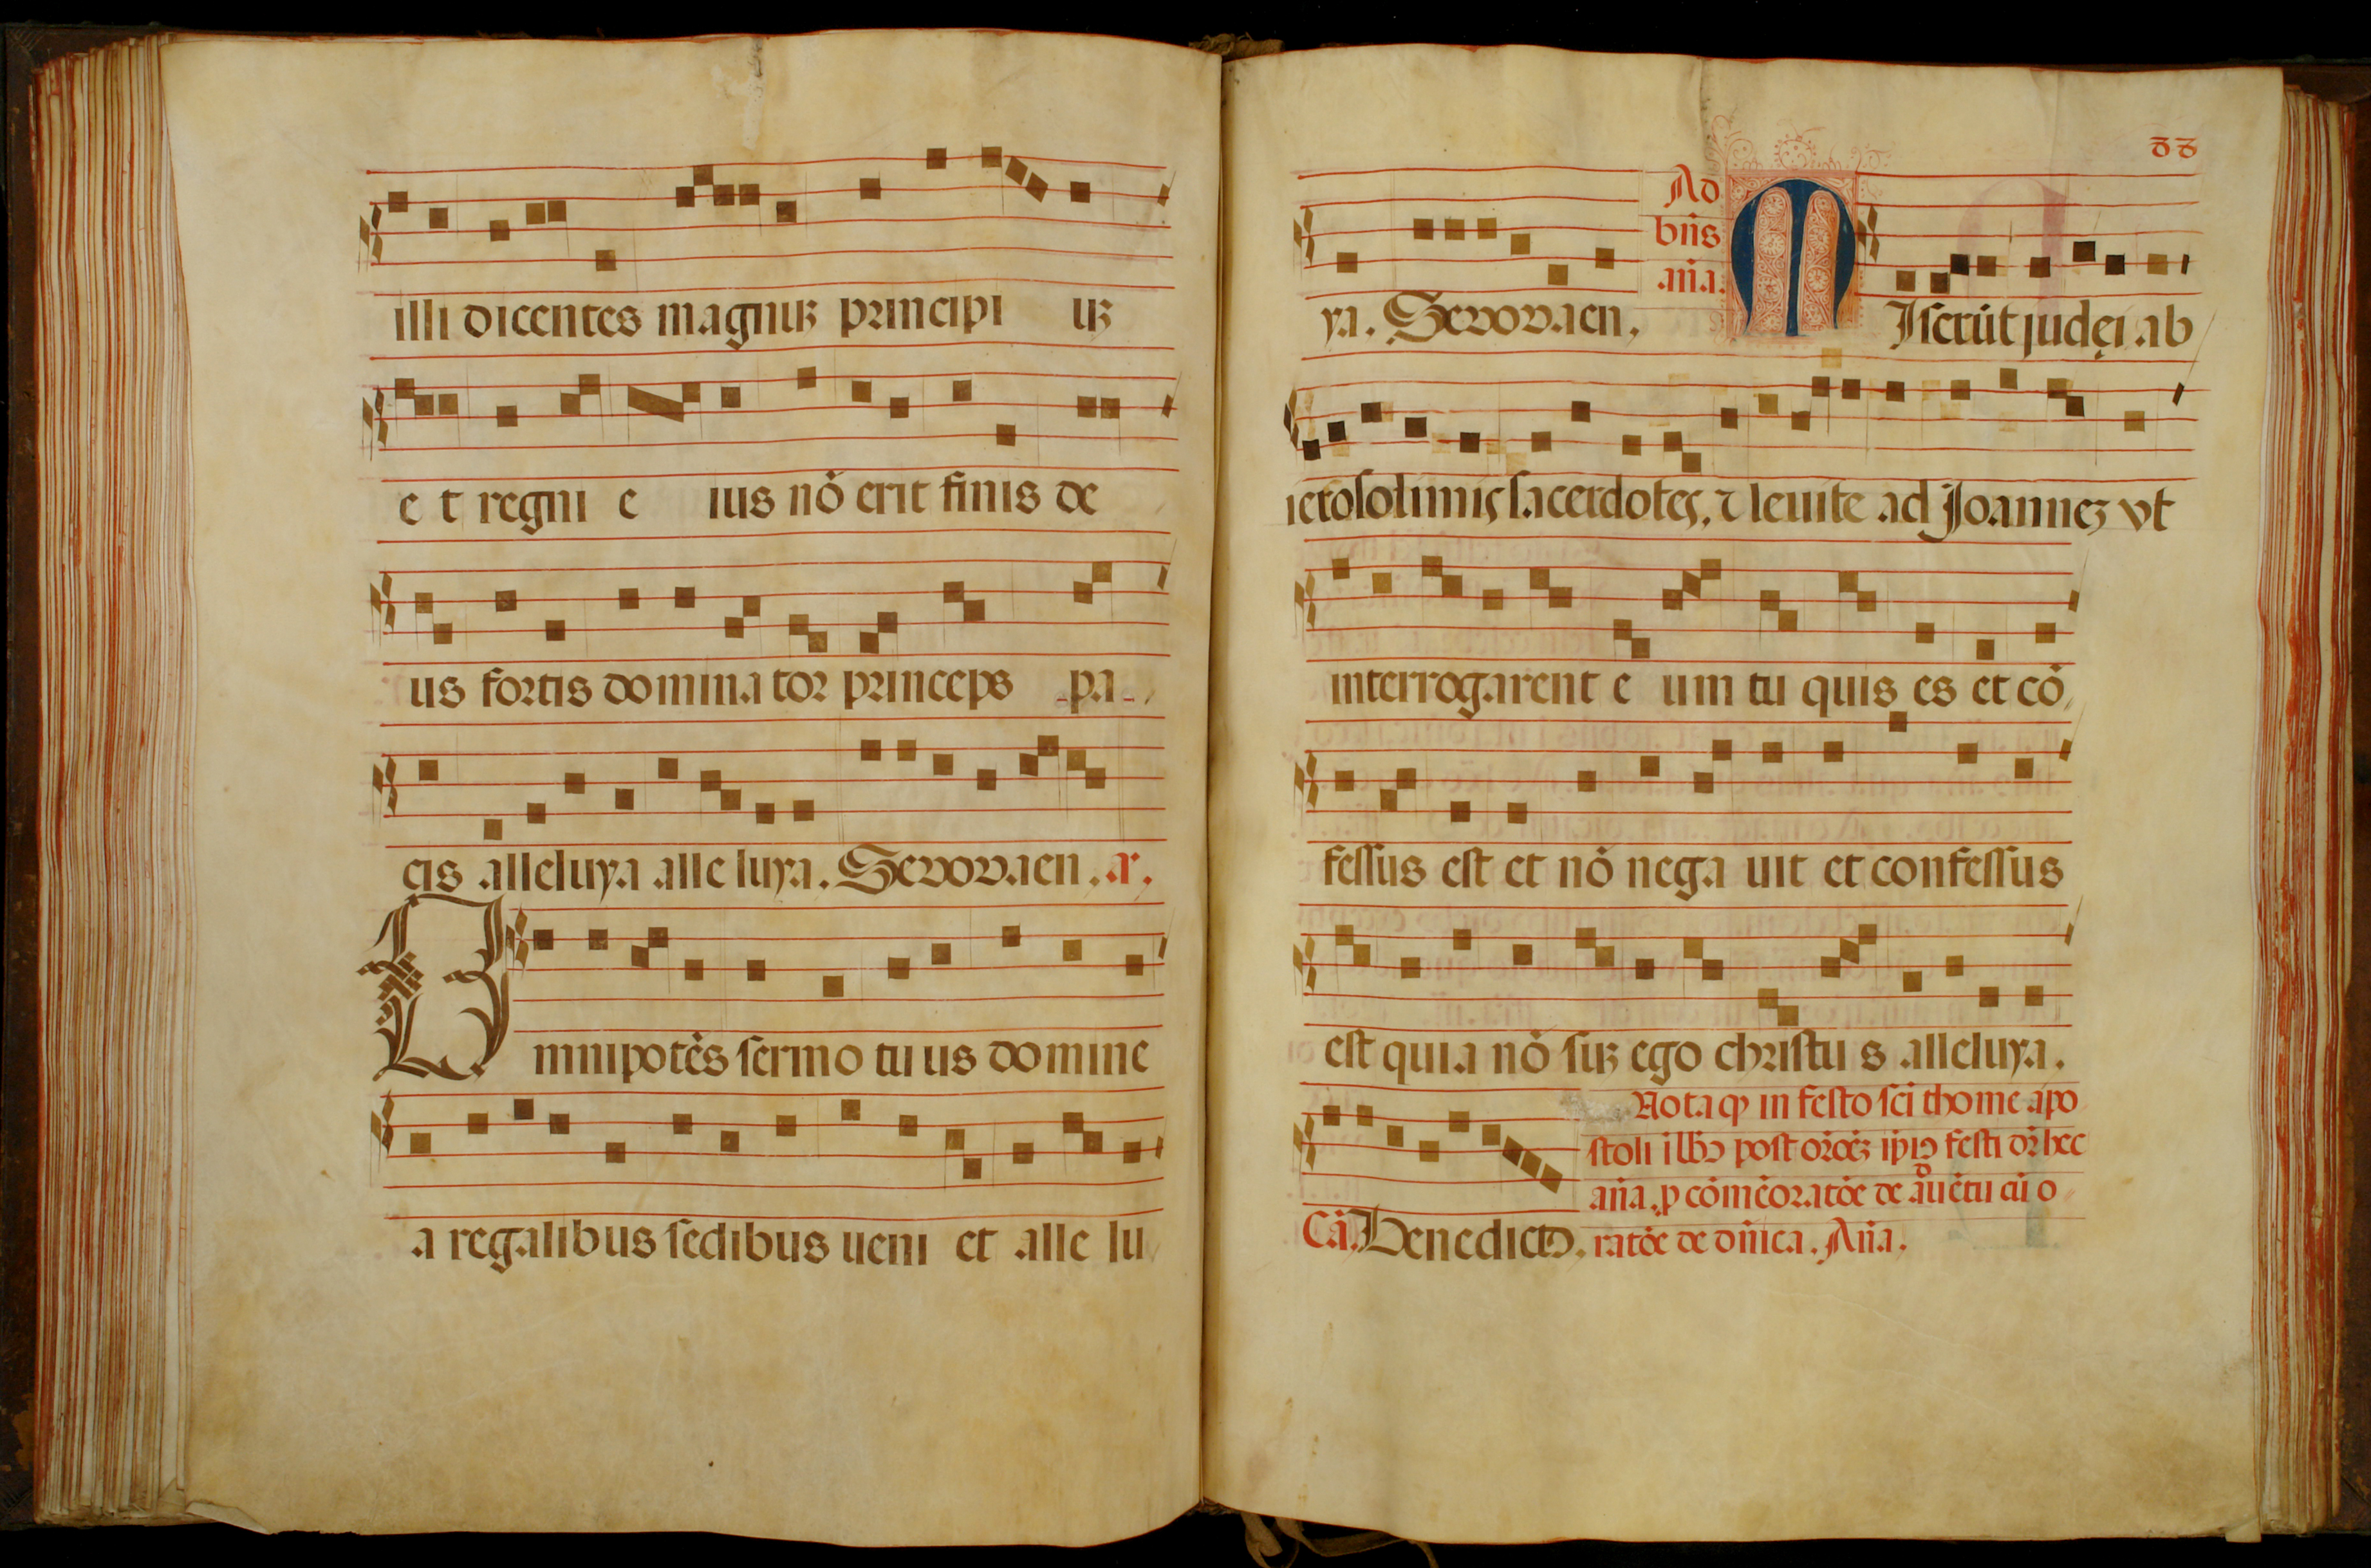 illi dicentes magnuꝫ principi uꝫ
e t regni e ius nō erit finis de
us fortis domina tor princeps pa-
cis alleluya alle luya. Sevovaen. a.
Omnipotēs sermo tu us domine
a regalibus sedibus ueni et alle lu
88
ya. Sevovaen. Ad bn̄s an̄a. MIserūt judęi ab
ierosolimis sacerdotes, ⁊ leuite ad Joanneꝫ vt
interrogarent e um tu quis es et cō
fessus est et nō nega uit et confessus
est quia nō suꝫ ego christu s alleluya.
Nota ꝙ in festo sci thome apo
stoli post festi hec
an̄a. ꝓ de
Cā. Benedictꝰ. ratōe de dn̄ica. An̄a.